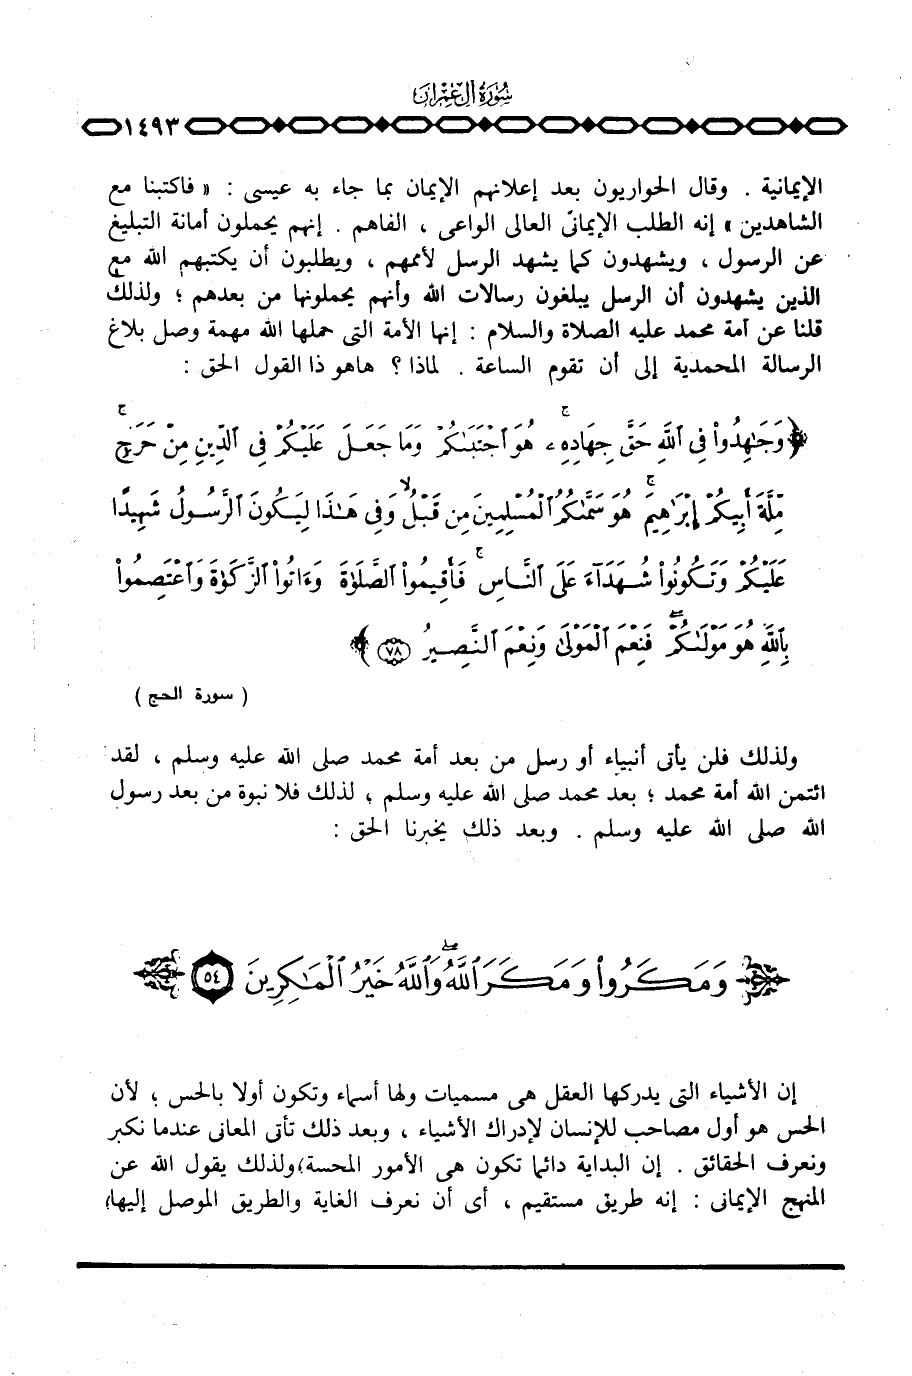 سُورَةُ آلِ عِمْرَانَ
١٤٩٣
الإيمانية . وقال الحواريون بعد إعلانهم الإيمان بما جاء به عيسى : « فاكتبنا مع
الشاهدين » إنه الطلب الإيمانىّ العالى الواعى ، الفاهم . إنهم يحملون أمانة التبليغ
عن الرسول ، ويشهدون كما يشهد الرسل لأممهم ، ويطلبون أن يكتبهم الله مع
الذين يشهدون أن الرسل يبلغون رسالات الله وأنهم يحملونها من بعدهم ؛ ولذلك
قلنا عن أمة محمد عليه الصلاة والسلام : إنها الأمة التى حملها الله مهمة وصل بلاغ
الرسالة المحمدية إلى أن تقوم الساعة . لماذا ؟ هاهو ذا القول الحق :
﴿ وَجَـٰهِدُوا۟ فِى ٱللَّهِ حَقَّ جِهَادِهِۦ ۚ هُوَ ٱجْتَبَىٰكُمْ وَمَا جَعَلَ عَلَيْكُمْ فِى ٱلدِّينِ مِنْ حَرَجٍ ۚ
مِّلَّةَ أَبِيكُمْ إِبْرَٰهِيمَ ۚ هُوَ سَمَّىٰكُمُ ٱلْمُسْلِمِينَ مِن قَبْلُ ۙ وَفِى هَـٰذَا لِيَكُونَ ٱلرَّسُولُ شَهِيدًا
عَلَيْكُمْ وَتَكُونُوا۟ شُهَدَآءَ عَلَى ٱلنَّاسِ ۚ فَأَقِيمُوا۟ ٱلصَّلَوٰةَ وَءَاتُوا۟ ٱلزَّكَوٰةَ وَٱعْتَصِمُوا۟
بِٱللَّهِ هُوَ مَوْلَىٰكُمْ ۖ فَنِعْمَ ٱلْمَوْلَىٰ وَنِعْمَ ٱلنَّصِيرُ ﴿٧٨﴾ ﴾
( سورة الحج )
ولذلك فلن يأتى أنبياء أو رسل من بعد أمة محمد صلى الله عليه وسلم ، لقد
ائتمن الله أمة محمد ؛ بعد محمد صلى الله عليه وسلم ، لذلك فلا نبوة من بعد رسول
الله صلى الله عليه وسلم . وبعد ذلك يخبرنا الحق :
﴿ وَمَكَرُوا۟ وَمَكَرَ ٱللَّهُ ۖ وَٱللَّهُ خَيْرُ ٱلْمَـٰكِرِينَ ٥٤ ﴾
إن الأشياء التى يدركها العقل هى مسميات ولها أسماء وتكون أولا بالحس ، لأن
الحس هو أول مصاحب للإنسان لإدراك الأشياء ، وبعد ذلك تأتى المعانى عندما نكبر
ونعرف الحقائق . إن البداية دائما تكون هى الأمور المحسة، ولذلك يقول الله عن
المنهج الإيمانى : إنه طريق مستقيم ، أى أن نعرف الغاية والطريق الموصل إليها،